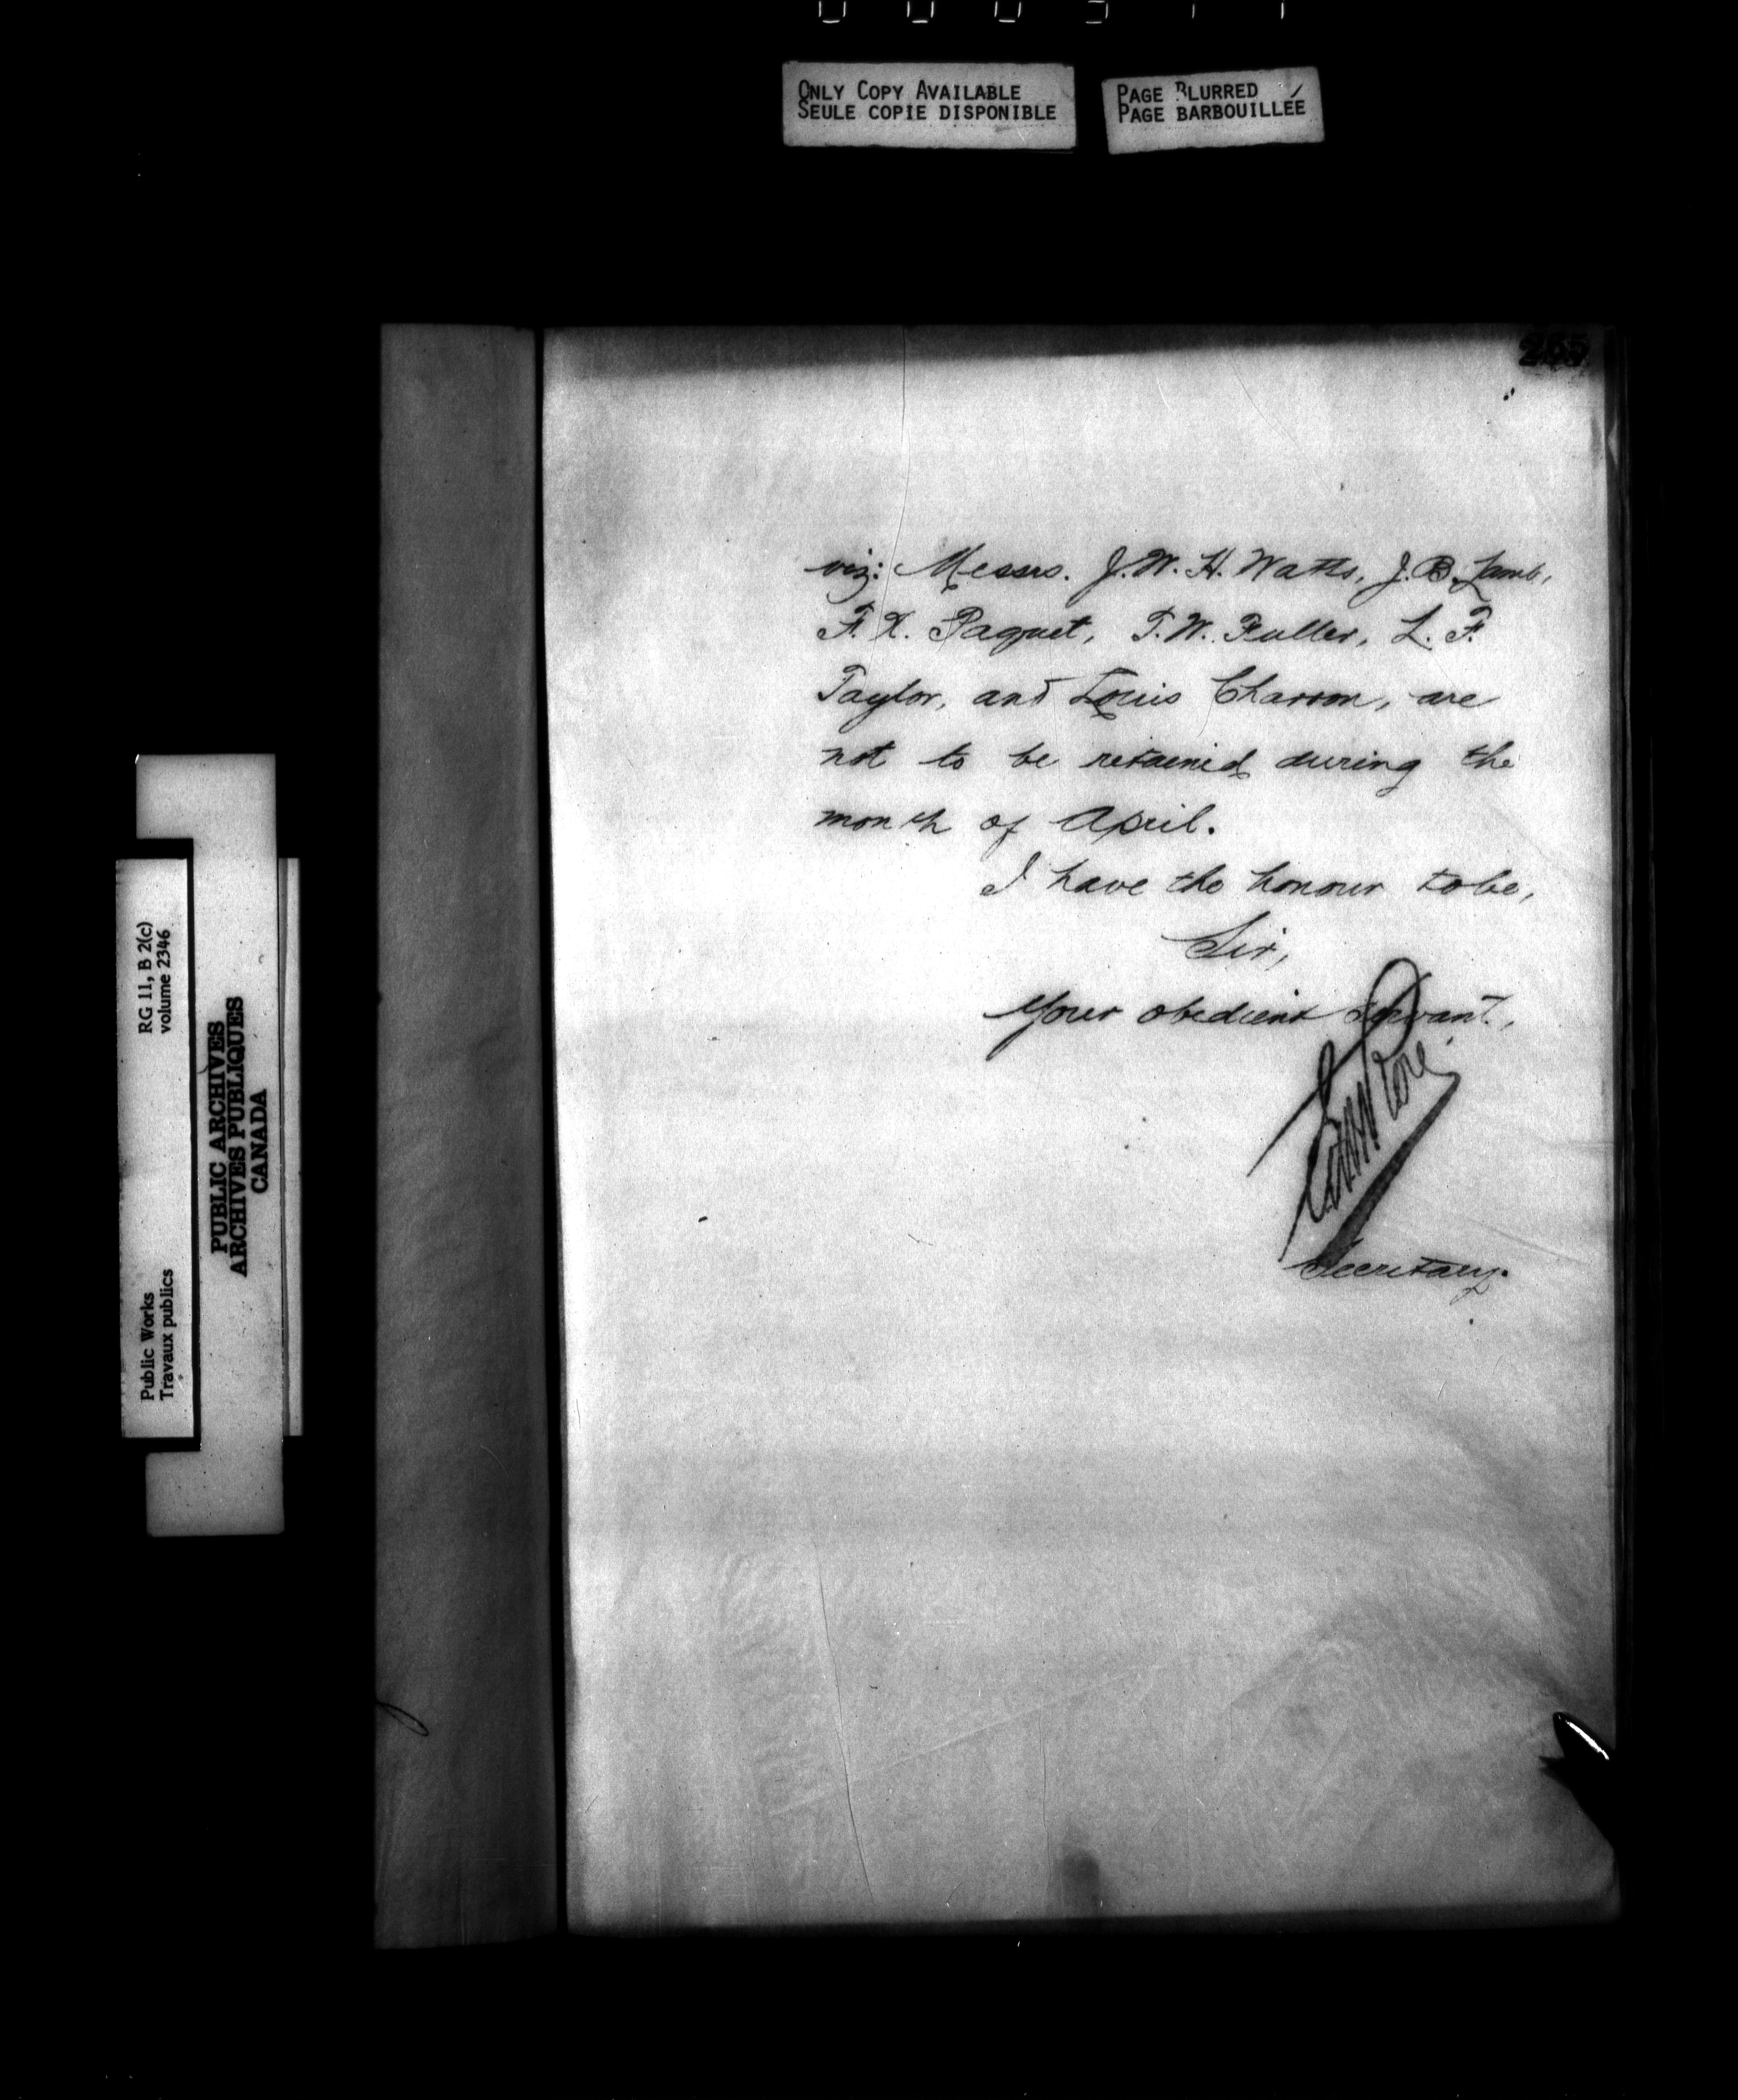 ONLY COPY AVAILABLE
SEULE COPIE DISPONIBLE
PAGE BLURRED
PAGE BARBOUILLÉE
265
viz: Messrs. J. W. H. Watts, J. B. Lamb,
F. X. Paquet, T. W. Fuller, L. F.
Taylor, and Louis Charron, are
not to be retained during the
month of April.
I have the honour to be,
Sir,
Your obedient servant,
Secretary.
RG 11, B 2(c)
volume 2346
Public Works
Travaux publics
PUBLIC ARCHIVES
ARCHIVES PUBLIQUES
CANADA